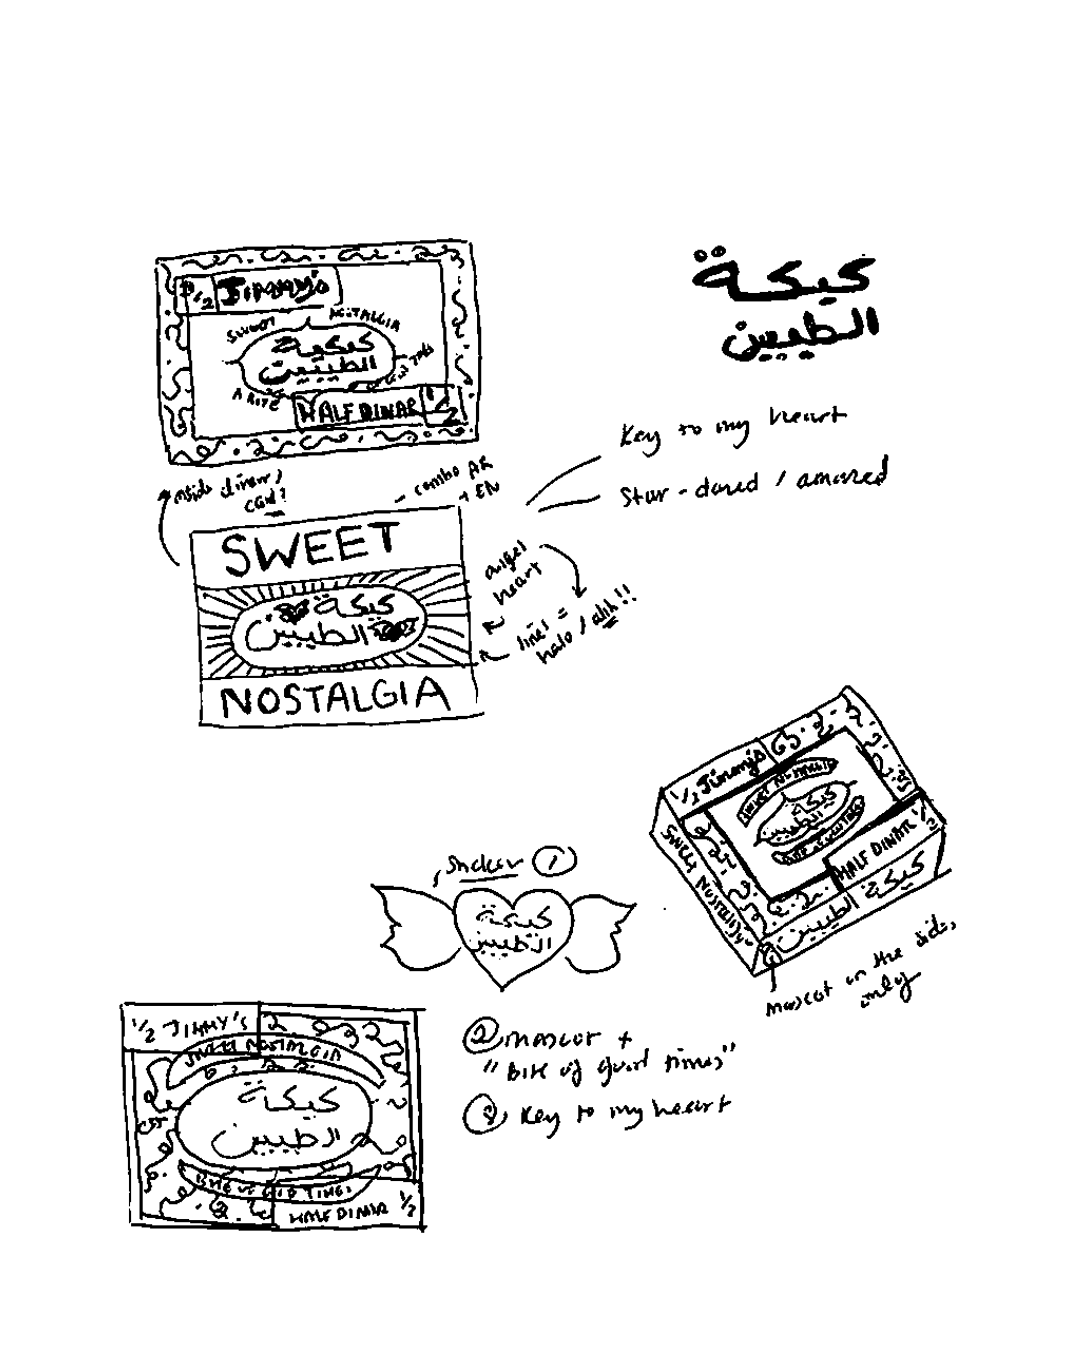 1/2 Jimmy's
SWEET NOSTALGIA
كيكة
الطيبين
A BITE OF GOOD TIMES
HALF DINAR 1/2
كيكة
الطيبين
Key to my heart
- combo AR
+ EN
inside dinar /
SWEET
كيكة
الطيبين
NOSTALGIA
angel
heart
lines =
halo / ahh!!
1/2 Jimmy's
SWEET NOSTALGIA
كيكة
الطيبين
BITE OF GOOD TIMES
HALF DINAR 1/2
SWEET NOSTALGIA
كيكة الطيبين
mascot on the sides
only
Sticker 1
كيكة
الطيبين
1/2 JIMMY'S
SWEET NOSTALGIA
كيكة
الطيبين
BITE OF GOOD TIMES
HALF DINAR 1/2
2 mascot +
"Bite of good times"
3 Key to my heart